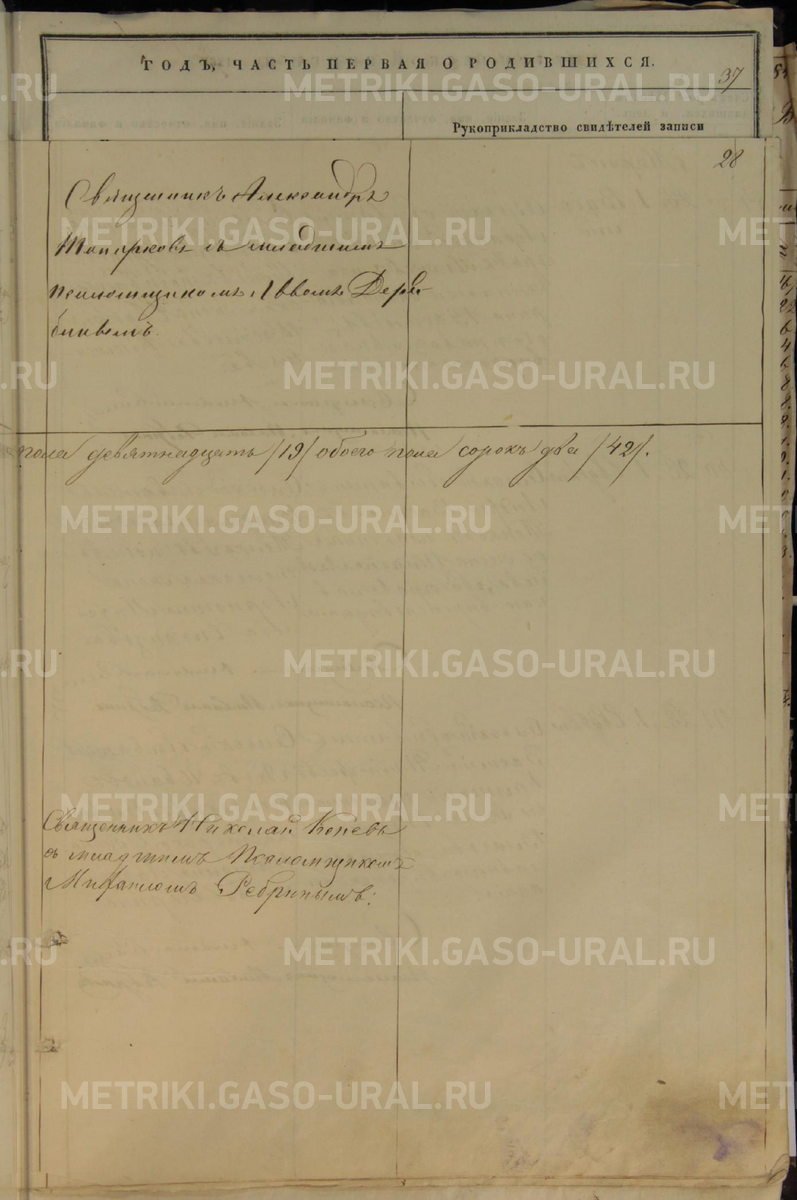 ГОДЪ, ЧАСТЬ ПЕРВАЯ О РОДИВШИХСЯ.
37
Рукоприкладство свидѣтелей записи
28
Священникъ Александръ
Топорковъ съ младшимъ
псаломщикомъ Львомъ Дере-
пола девятнадцать /19/ обоего пола сорокъ два /42/.
Священникъ Николай Коневъ
съ младшимъ Псаломщикомъ
METRIKI.GASO-URAL.RU